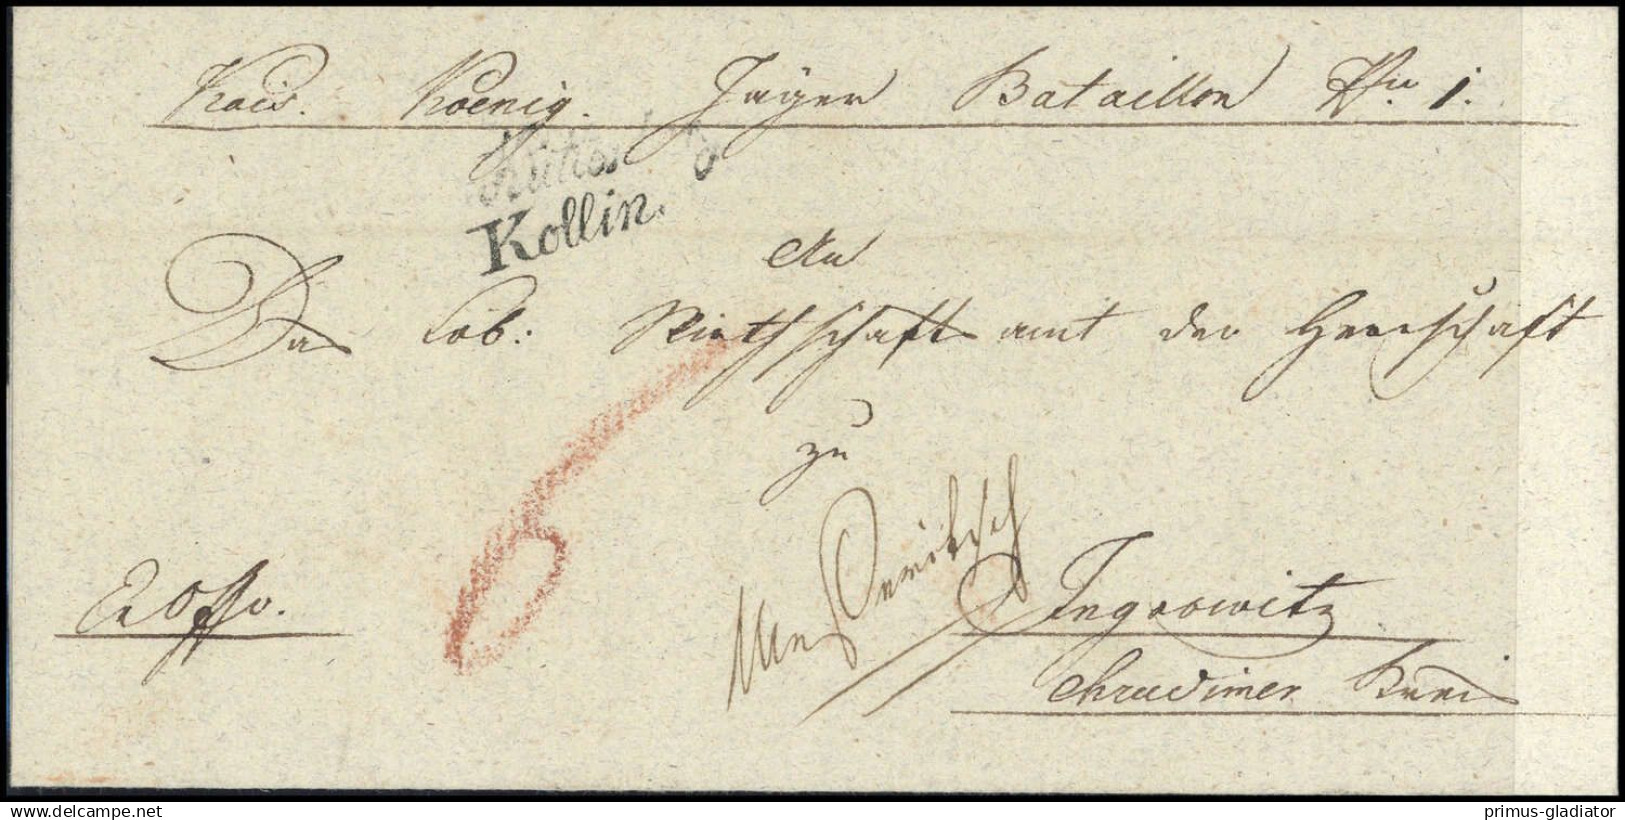 Kais. Koenig. Jäger Bataillon Nro 1.
Kollin.
An
Das Lob: Wirthschaftsamt der Herrschaft
zu
Ingrowitz
Chrudimer Kreis
Ex Offo.
6
delcampe.net
primus-gladiator